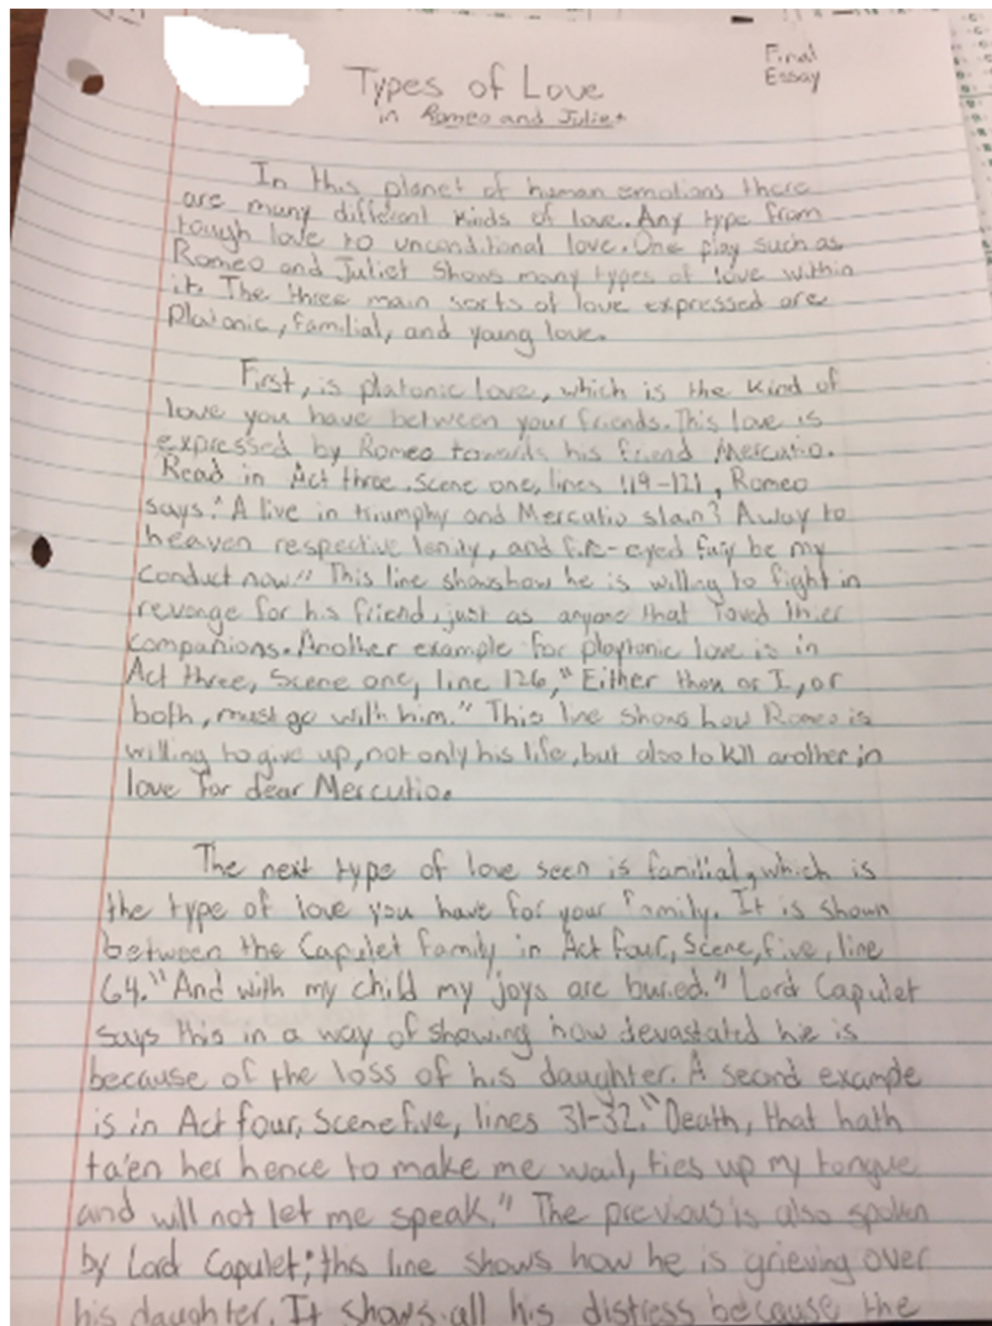 Final
Essay
Types of Love
in Romeo and Juliet
In this planet of human emotions there
are many different kinds of love. Any type from
tough love to unconditional love. One play such as
Romeo and Juliet shows many types of love within
it. The three main sorts of love expressed are
Platonic, familial, and young love.
First, is platonic love, which is the kind of
love you have between your friends. This love is
expressed by Romeo towards his friend Mercutio.
Read in Act three, scene one, lines 119-121, Romeo
says: "A live in triumphy and Mercutio slain? Away to
heaven respective lenity, and fire-eyed fury be my
conduct now." This line shows how he is willing to fight in
revenge for his friend, just as anyone that loved thier
companions. Another example for playtonic love is in
Act three, scene one, line 126, "Either thou or I, or
both, must go with him." This line shows how Romeo is
willing to give up, not only his life, but also to kill another in
love for dear Mercutio.
The next type of love seen is familial, which is
the type of love you have for your family. It is shown
between the Capulet family in Act four, Scene, five, line
64. "And with my child my joys are buried." Lord Capulet
says this in a way of showing how devastated he is
because of the loss of his daughter. A second example
is in Act four, Scene five, lines 31-32. "Death, that hath
ta'en her hence to make me wail, ties up my tongue
and will not let me speak." The previous is also spoken
by Lord Capulet; this line shows how he is grieving over
his daughter. It shows all his distress because the